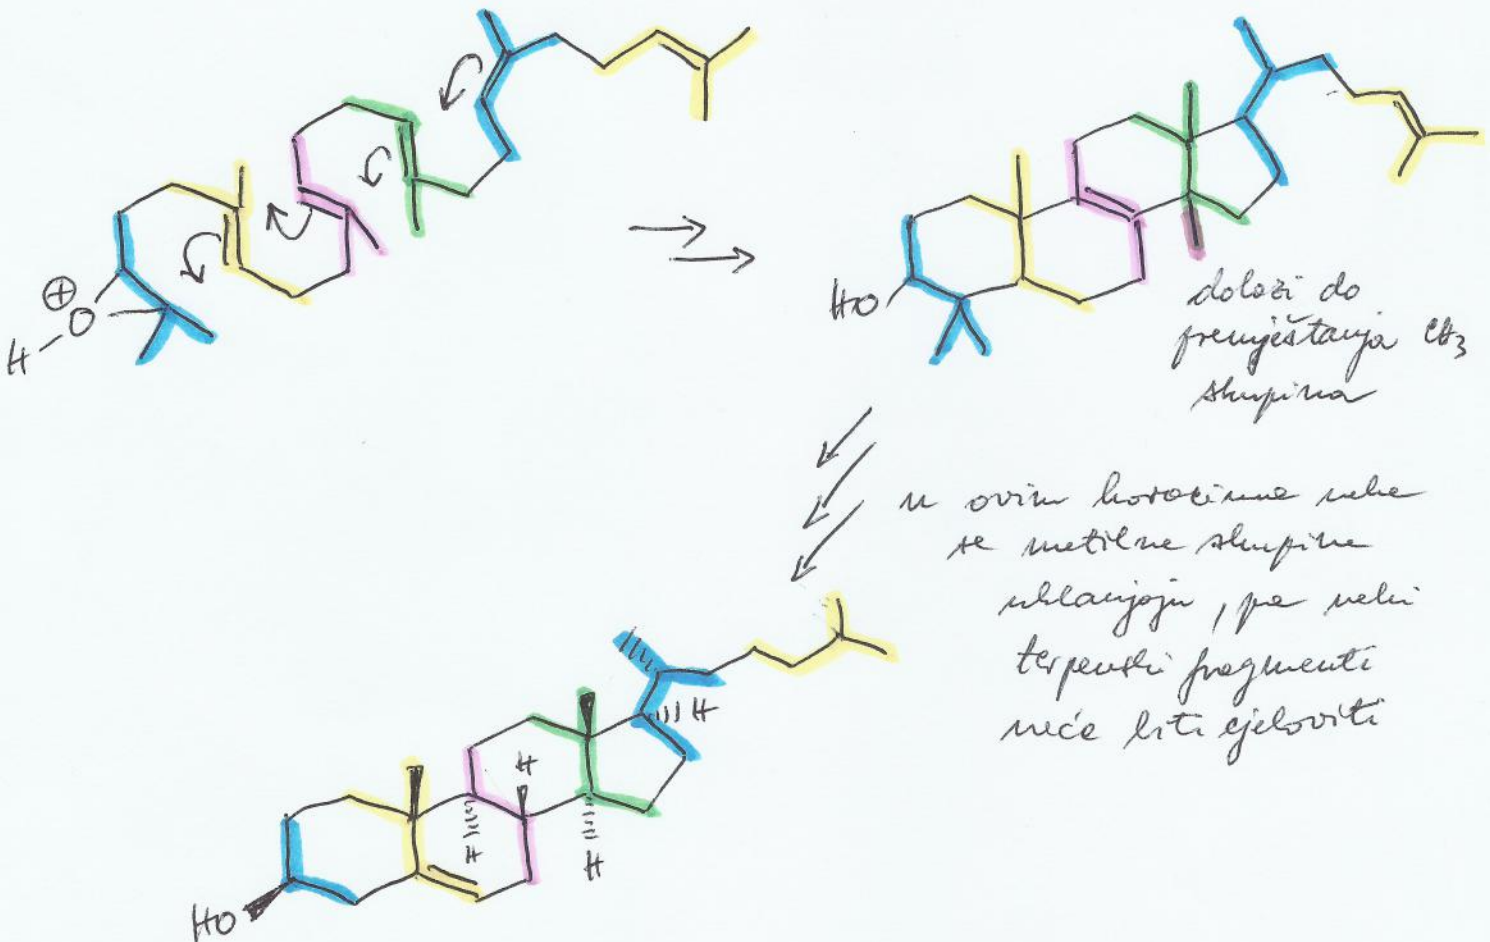 ⊕
H
O
HO
dolazi do
premještanja CH3
skupina
u ovim koracima neke
se metilne skupine
uklanjaju, pa neki
terpenski fragmenti
neće biti cjeloviti
H
H
H
H
HO